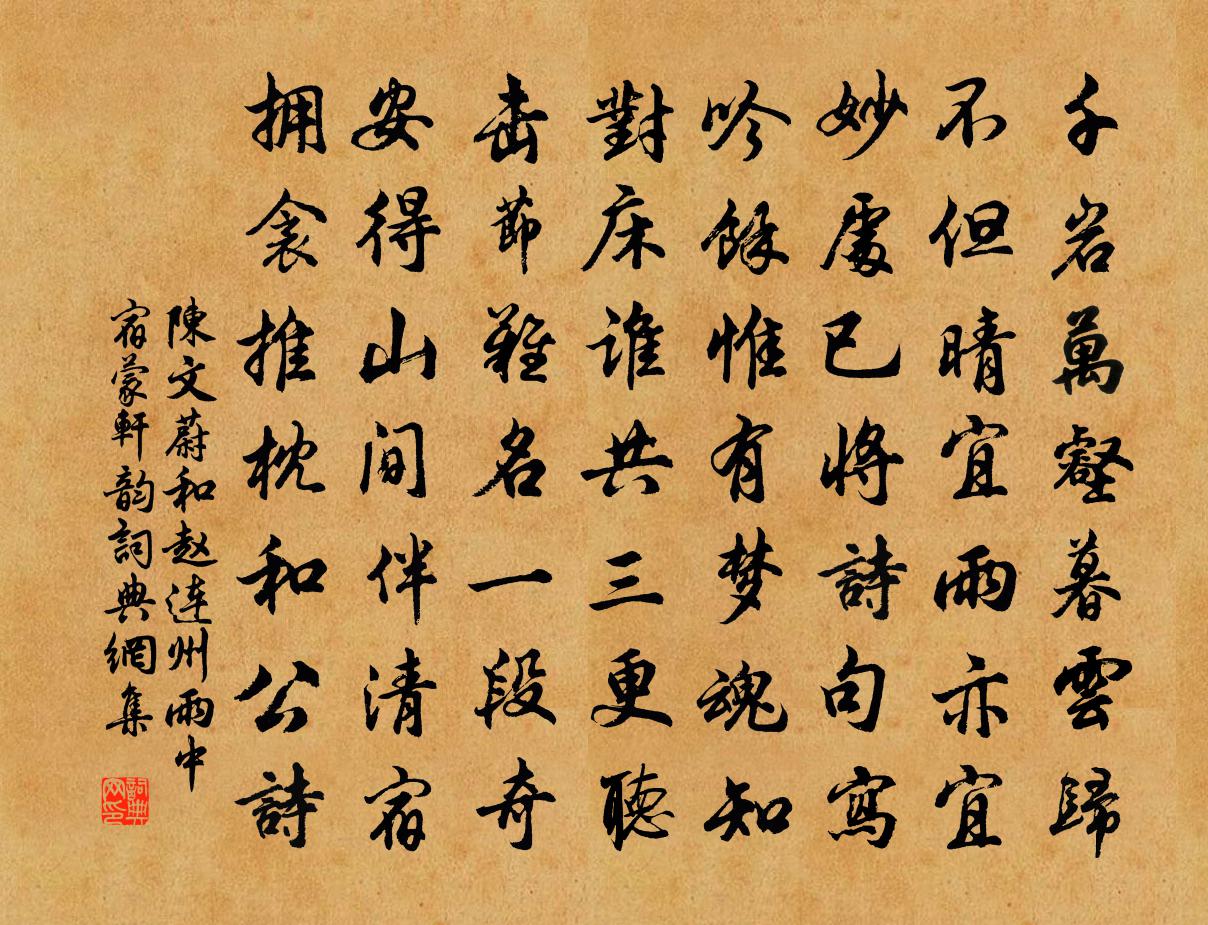 千岩萬壑暮雲歸
不但晴宜雨亦宜
妙處已將詩句寫
吟餘惟有梦魂知
對床谁共三更聽
击節難名一段奇
安得山间伴清宿
拥衾推枕和公詩
陳文蔚和赵连州雨中
宿蒙軒韵詞典網集
詞典网印